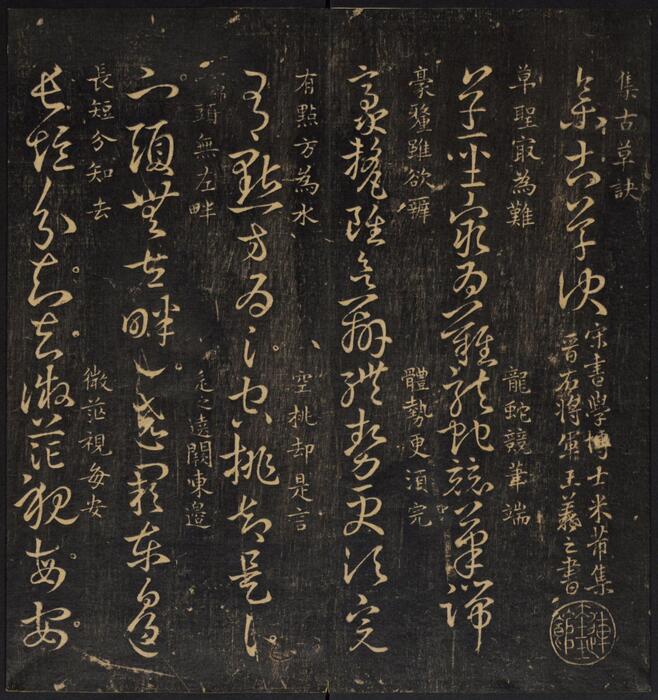 集古草訣
集古草訣
宋書學博士米芾集
晉右將軍王羲之書
草聖㝡為難 龍蛇競筆端
草聖㝡為難龍蛇競筆端
豪釐雖欲辨 體勢更須完
豪釐雖欲辨體勢更須完
有點方為水 空挑却是言
有點方為水空挑却是言
頭無左畔 辵之遶闕東邊
宀頭無左畔辶遶闕東邊
長短分知去 微茫視每安
長短分知去微茫視每安